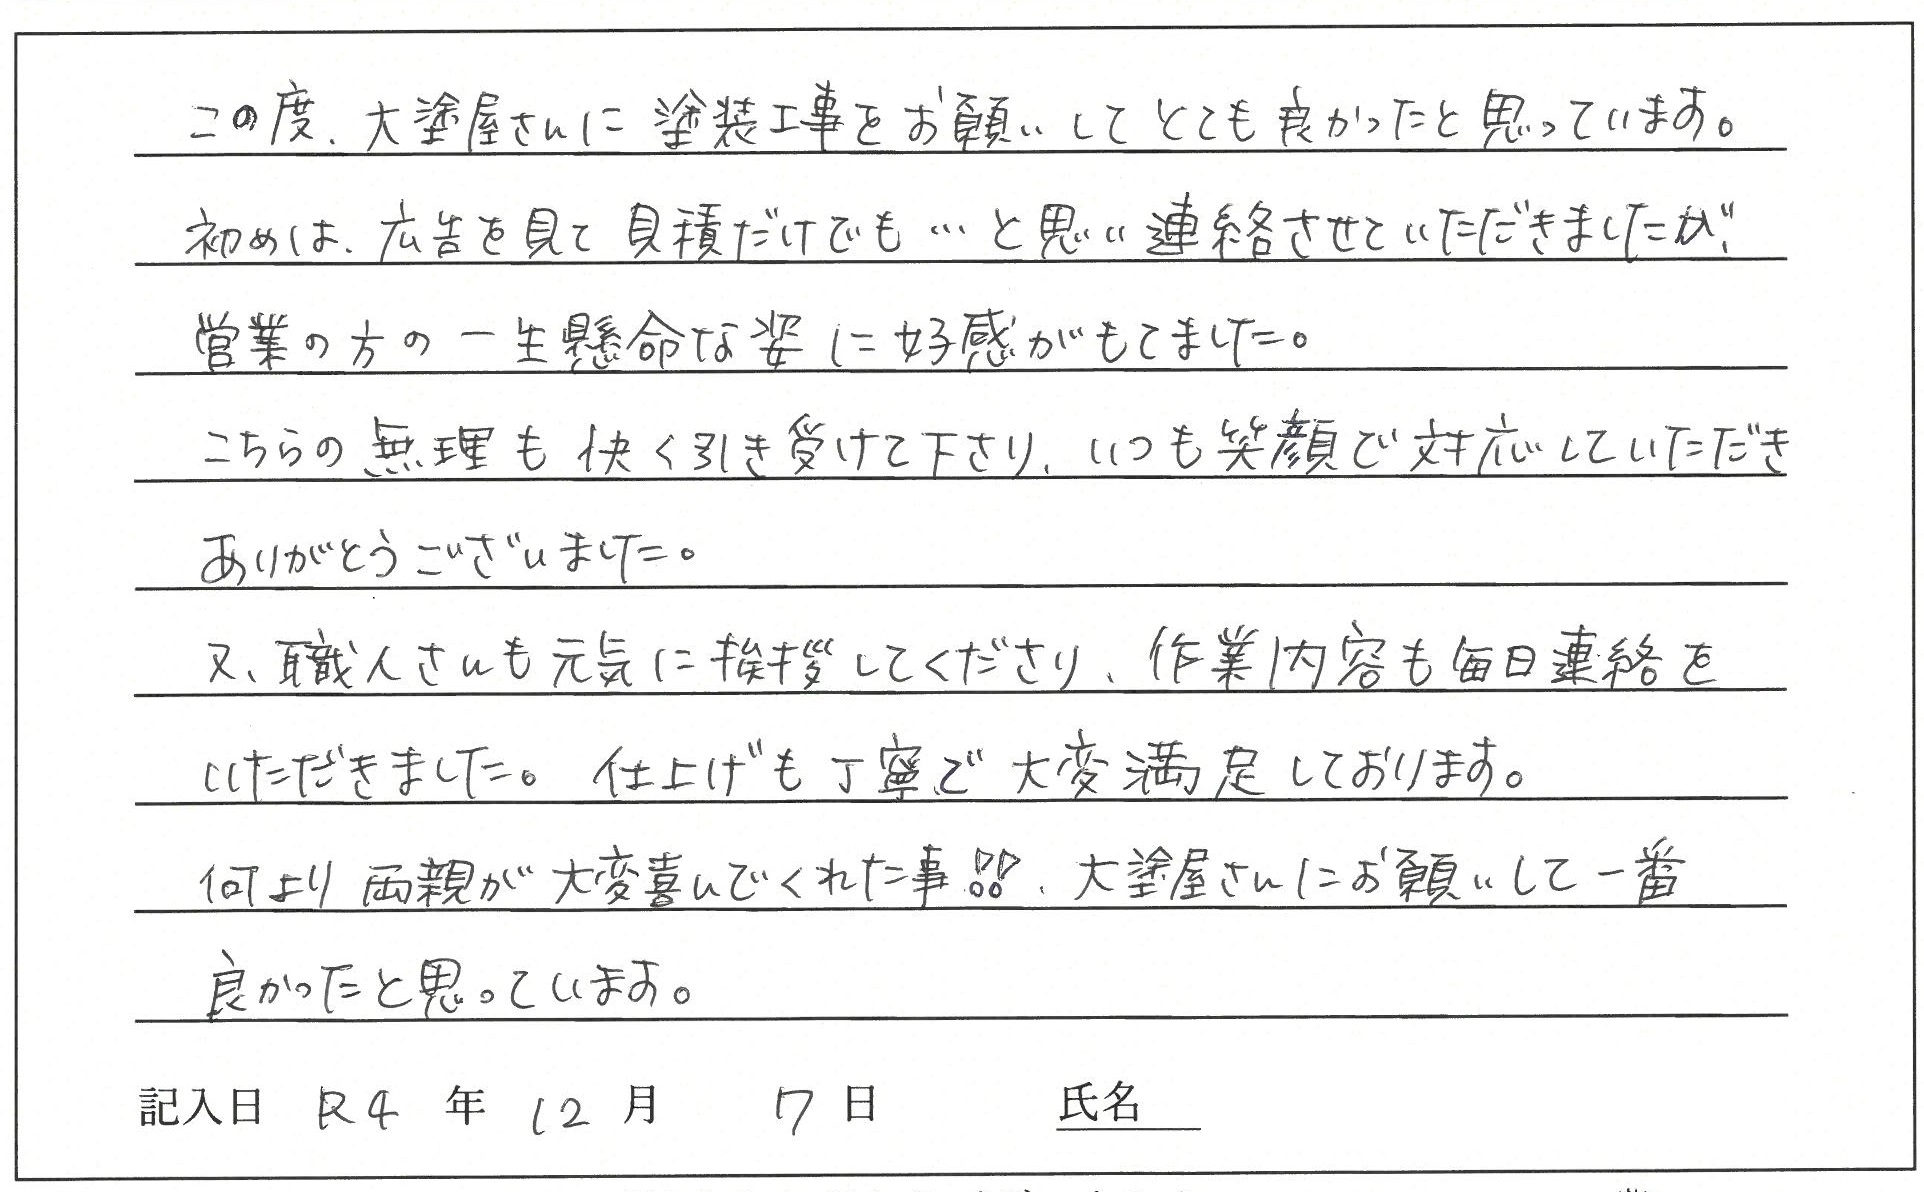 この度、大塗屋さんに塗装工事をお願いしてとても良かったと思っています。
初めは、広告を見て見積だけでも…と思い連絡させていただきましたが、
営業の方の一生懸命な姿に好感がもてました。
こちらの無理も快く引き受けて下さり、いつも笑顔で対応していただき
ありがとうございました。
又、職人さんも元気に挨拶してくださり、作業内容も毎日連絡を
いただきました。仕上げも丁寧で大変満足しております。
何より両親が大変喜んでくれた事!!、大塗屋さんにお願いして一番
良かったと思っています。
記入日 R4 年 12 月 7 日 氏名